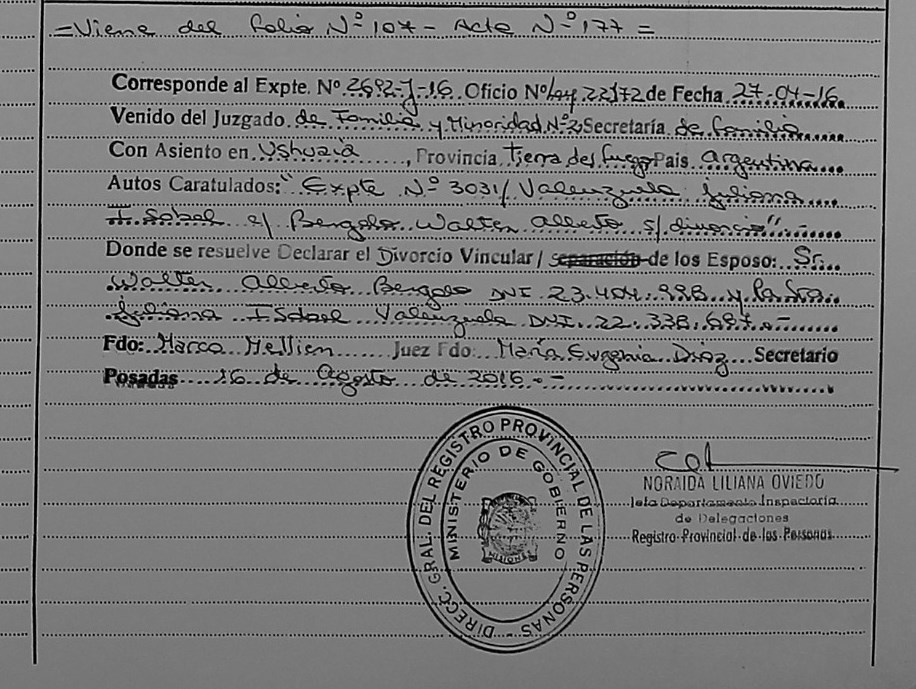 =Viene del Folio Nº 107- Acta Nº 177=
Corresponde al Expte. Nº 2692-J-16. Oficio Nº Ley 22172 de Fecha 27-04-16
Venido del Juzgado de Familia y Minoridad Nº2, Secretaría de familia
Con Asiento en Ushuaia, Provincia Tierra del fuego Pais Argentina
Autos Caratulados: "Expte Nº 3031/ Valenzuela Juliana
Isabel c/ Bergalo Walter Alberto s/ divorcio"-
Donde se resuelve Declarar el Divorcio Vincular / separación de los Esposo: Sr.
Walter Alberto Bergalo DNI 23.404.998 y la Sra.
Juliana Isabel Valenzuela DNI. 22.338.687.-
Fdo: Marco Mellien Juez Fdo: María Eugenia Diaz Secretario
Posadas 16 de Agosto de 2016.-
DIRECC. GRAL. DEL REGISTRO PROVINCIAL DE LAS PERSONAS -
MINISTERIO DE GOBIERNO
MISIONES
NORAIDA LILIANA OVIEDO
Jefa Departamento Inspectoría
de Delegaciones
Registro Provincial de las Personas